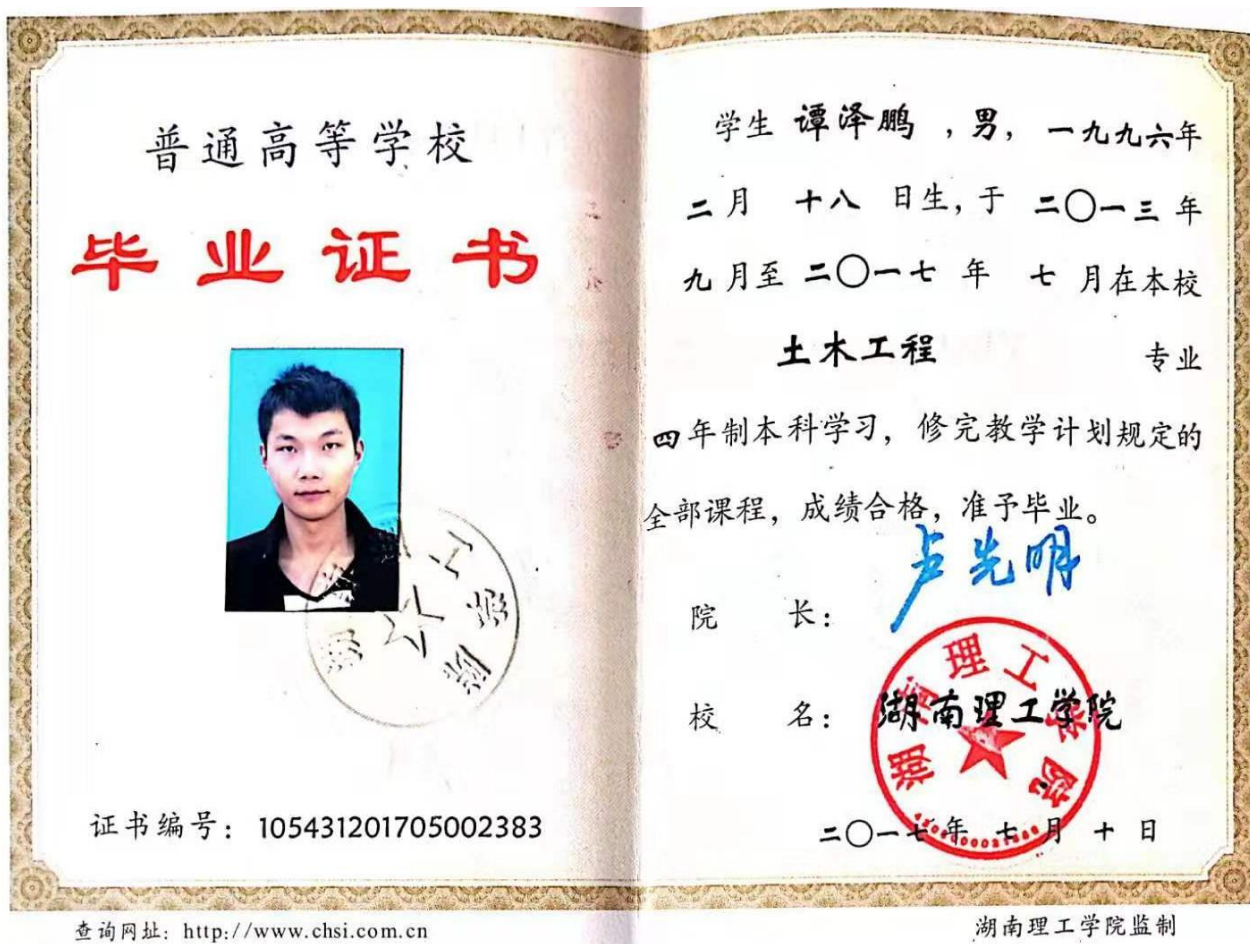 普通高等学校
毕业证书
湖南理工学院
证书编号：105431201705002383
查询网址：http://www.chsi.com.cn
学生 谭泽鹏 ，男，一九九六年
二月 十八 日生，于 二〇一三 年
九月至 二〇一七 年 七 月在本校
土木工程 专业
四年制本科学习，修完教学计划规定的
全部课程，成绩合格，准予毕业。
院 长：卢先明
校 名：湖南理工学院
湖南理工学院
二〇一七年 七月 十日
湖南理工学院监制